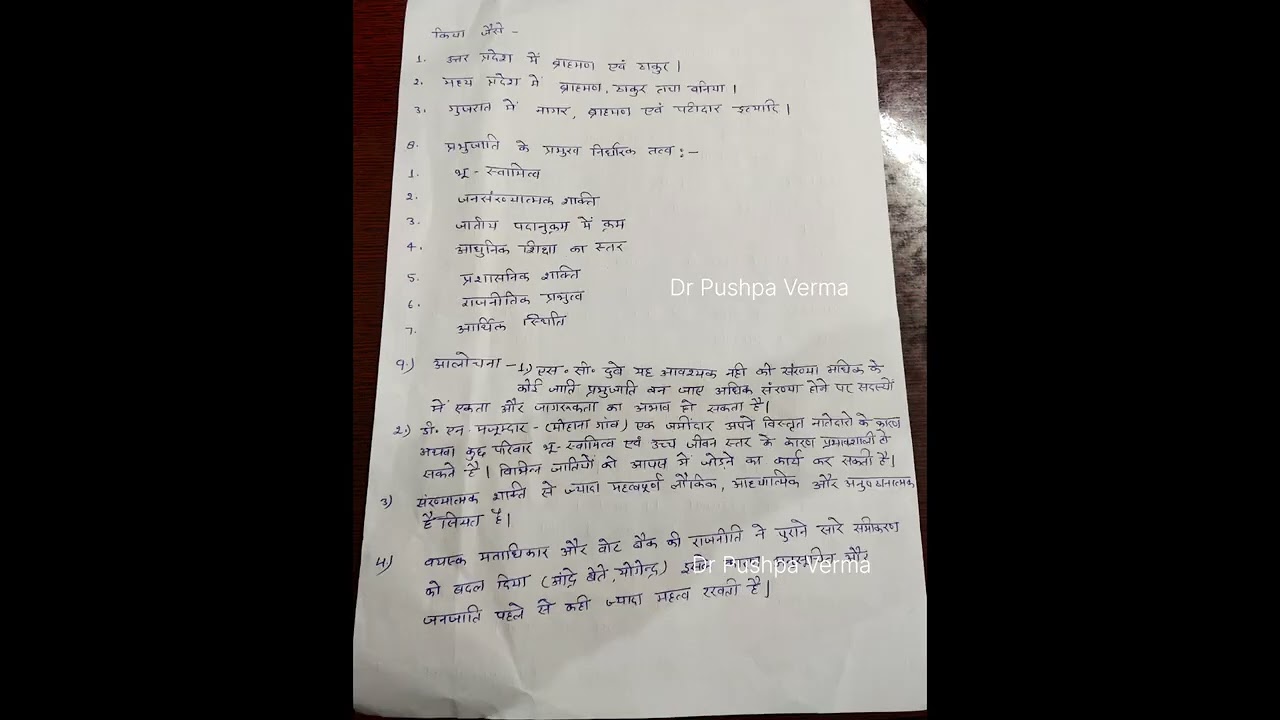 किया जैसे -
1. उत्तर प्रदेश में ब्राहमण एवं ठाकुर।
2. मध्य प्रदेश में ब्राहमण, ठाकुर तथा बनिया।
3. गुजरात में नागर, ब्राहमण एवं पटीदार इत्यादि।
8. प्रभुजाति के प्रमुख निर्धारक तत्व :-
1. भू - स्वामित्व
2. जनसंख्यात्मक शक्ति
3. जातीय पदानुक्रम में क्रम
4. आधुनिक शिक्षा का स्तर
5. प्रशासनिक शक्ति
Dr Pushpa Verma
6. राजनीतिक प्रभुत्व
7. आर्थिक स्थिति
9.) आलोचना - 1) एस० सी० दुबे यह आवश्यक नही की संख्या अधिक के
कोई जाति प्रभुजाति बन जाए अधिक संख्या होने पर सदस्यों
में एकता और जागरूकता का अभाव हो सकता है।
2.) डी० एन० मजूमदार - (मोहाना गांव) एक जमींदार अपने विस्तृत नातेदारो के कारण
अथवा कुछ परिवार भू - स्वामित्व एवं उच्च जीवन स्तर के कारण प्रभावशाली हो
सकते है। विभिन्न जातियों को आपस में जोड़ने का कार्य कर सकती है।
3) संख्यात्मक शक्ति से ज्यादा महत्वपूर्ण लौकिक, और अनुष्ठानात्मक
है।
4) वयस्क मताधिकार और वोट बैंक की राजनीति ने पुराने सारे समीकरण
को बदल दिया (आंद्रे बेते, योगेन्द्र) और
Dr Pushpa Verma
जनजाति पहले से कही ज्यादा महत्व रखती है।